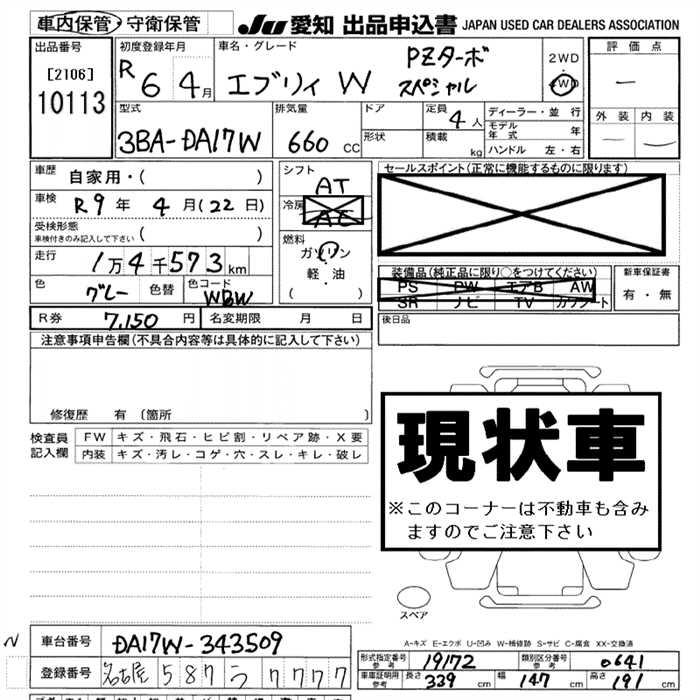 車内保管・守衛保管 JU 愛知 出品申込書 JAPAN USED CAR DEALERS ASSOCIATION
出品番号 初度登録年月 車名・グレード 評価点
[2106] R 6 4月 エブリィ W PZターボ 2WD
10113 スペシャル 4WD
型式 排気量 ドア 定員 4人 ディーラー・並行 外装 内装
3BA-DA17W 660 CC 形状 積載 kg モデル年式 年
ハンドル 左・右
車歴 自家用・( ) シフト AT セールスポイント(正常に機能するものに限ります)
車検 R9年 4月(22日) 冷房 AC
受検形態 ( )
車検付きのみ記入して下さい
燃料 ガソリン
走行 1万4千573km 軽・油 装備品(純正品に限り○をつけてください) 新車保証書
色 グレー 色替 色コード WBW ( ) PS PW エアB AW 有・無
SR ナビ TV カワシート
R券 7,150円 名変期限 月 日 後日品
注意事項申告欄(不具合内容等は具体的に記入して下さい)
修復歴 有(箇所 )
検査員 FW キズ・飛石・ヒビ割・リペア跡・X要
記入欄 内装 キズ・汚レ・コゲ・穴・スレ・キレ・破レ
現状車
※このコーナーは不動車も含み
ますのでご注意下さい
スペア
A-キズ E-エクボ U-凹み W-補修跡 S-サビ C-腐食 XX-交換済
N 車台番号 DA17W-343509
形式指定番号 参考 19172 類別区分番号 参考 0641
登録番号 名古屋 587 う 7777
車庫証明用 参考 長さ 339 cm 幅 147 cm 高さ 191 cm